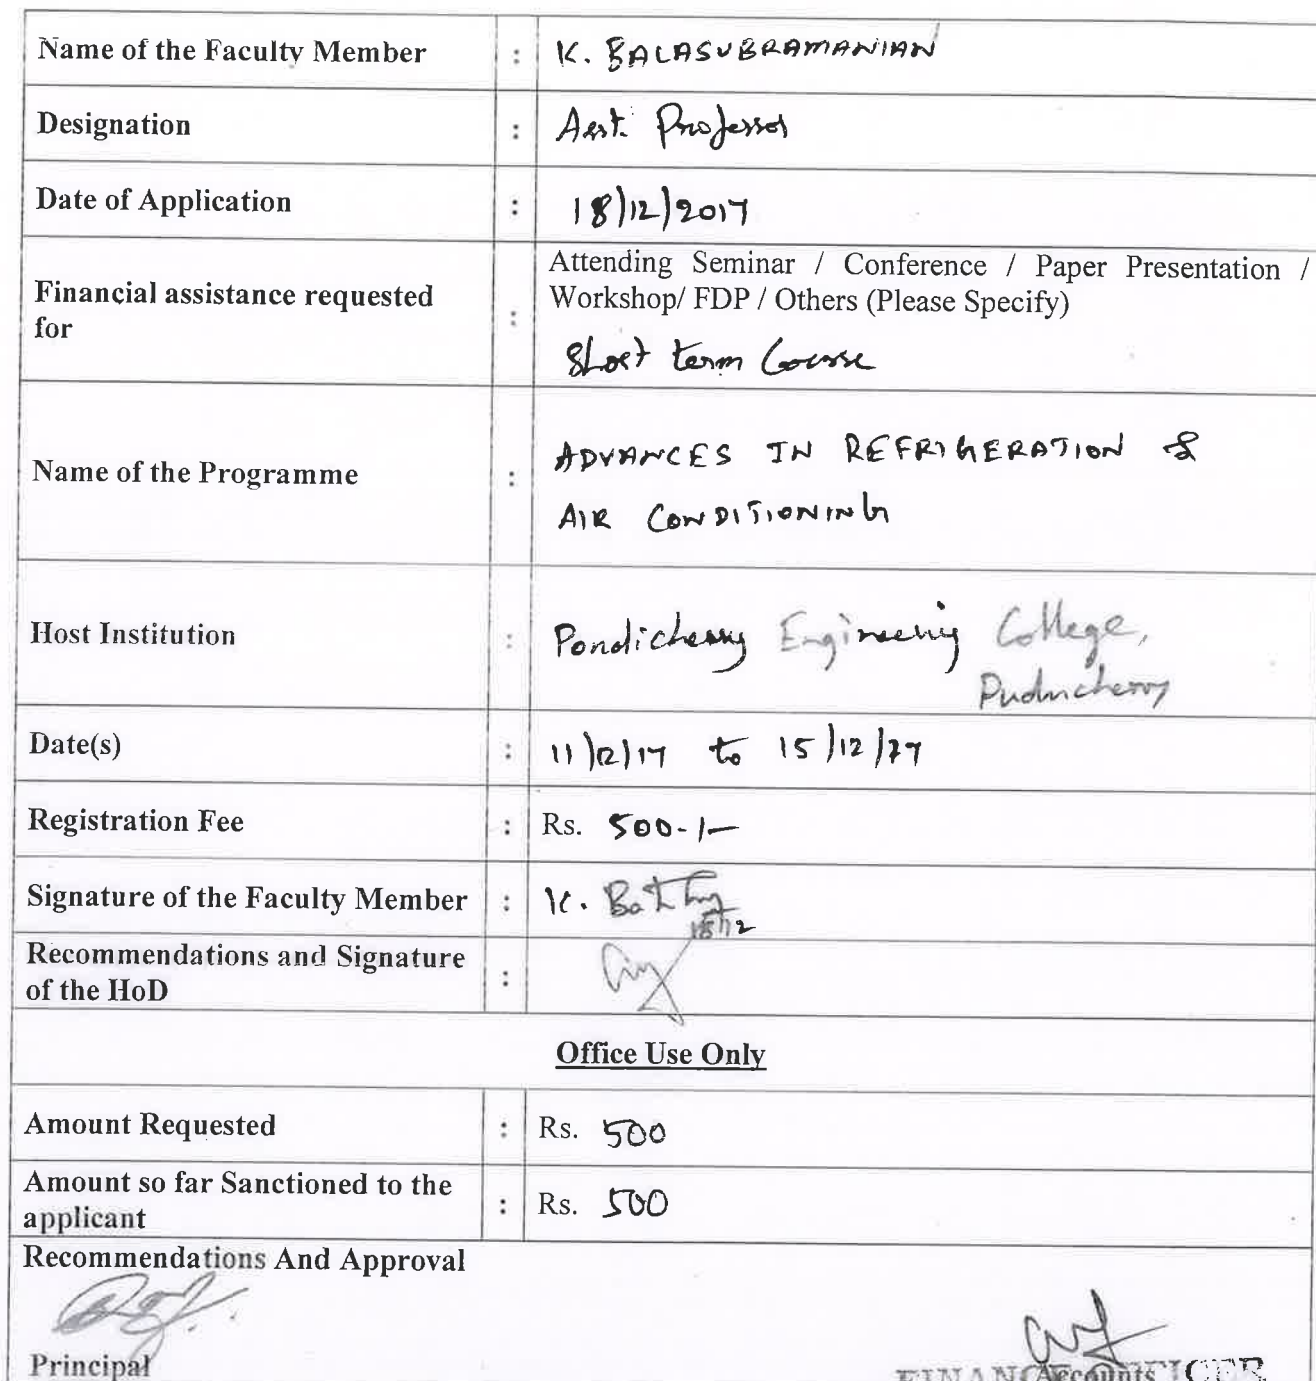 Name of the Faculty Member : K. BALASUBRAMANIAN
Designation : Asst. Professor
Date of Application : 18/12/2017
Attending Seminar / Conference / Paper Presentation /
Financial assistance requested for : Workshop/ FDP / Others (Please Specify)
Short term Course
Name of the Programme : ADVANCES IN REFRIGERATION &
AIR CONDITIONING
Host Institution : Pondicherry Engineering College,
Puducherry
Date(s) : 11/12/17 to 15/12/17
Registration Fee : Rs. 500-/-
Signature of the Faculty Member : K.
18/12
Recommendations and Signature
of the HoD :
Office Use Only
Amount Requested : Rs. 500
Amount so far Sanctioned to the
applicant : Rs. 500
Recommendations And Approval
Principal
Accounts
FINANCE OFFICER